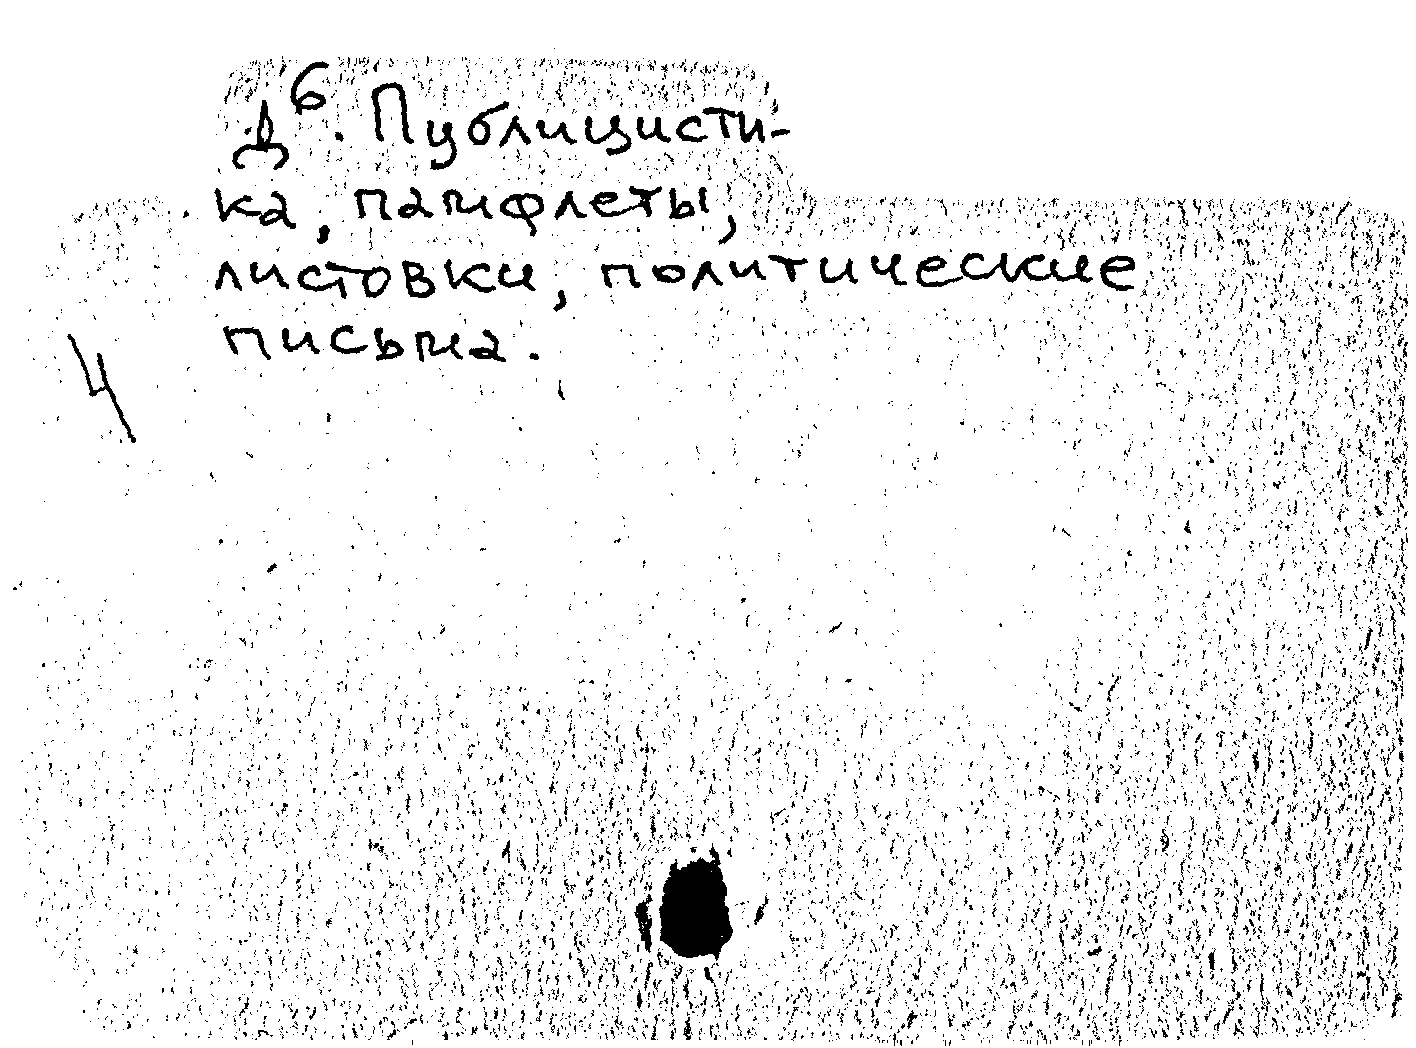 Д⁶. Публицисти-
ка, памфлеты,
листовки, политические
письма.
4